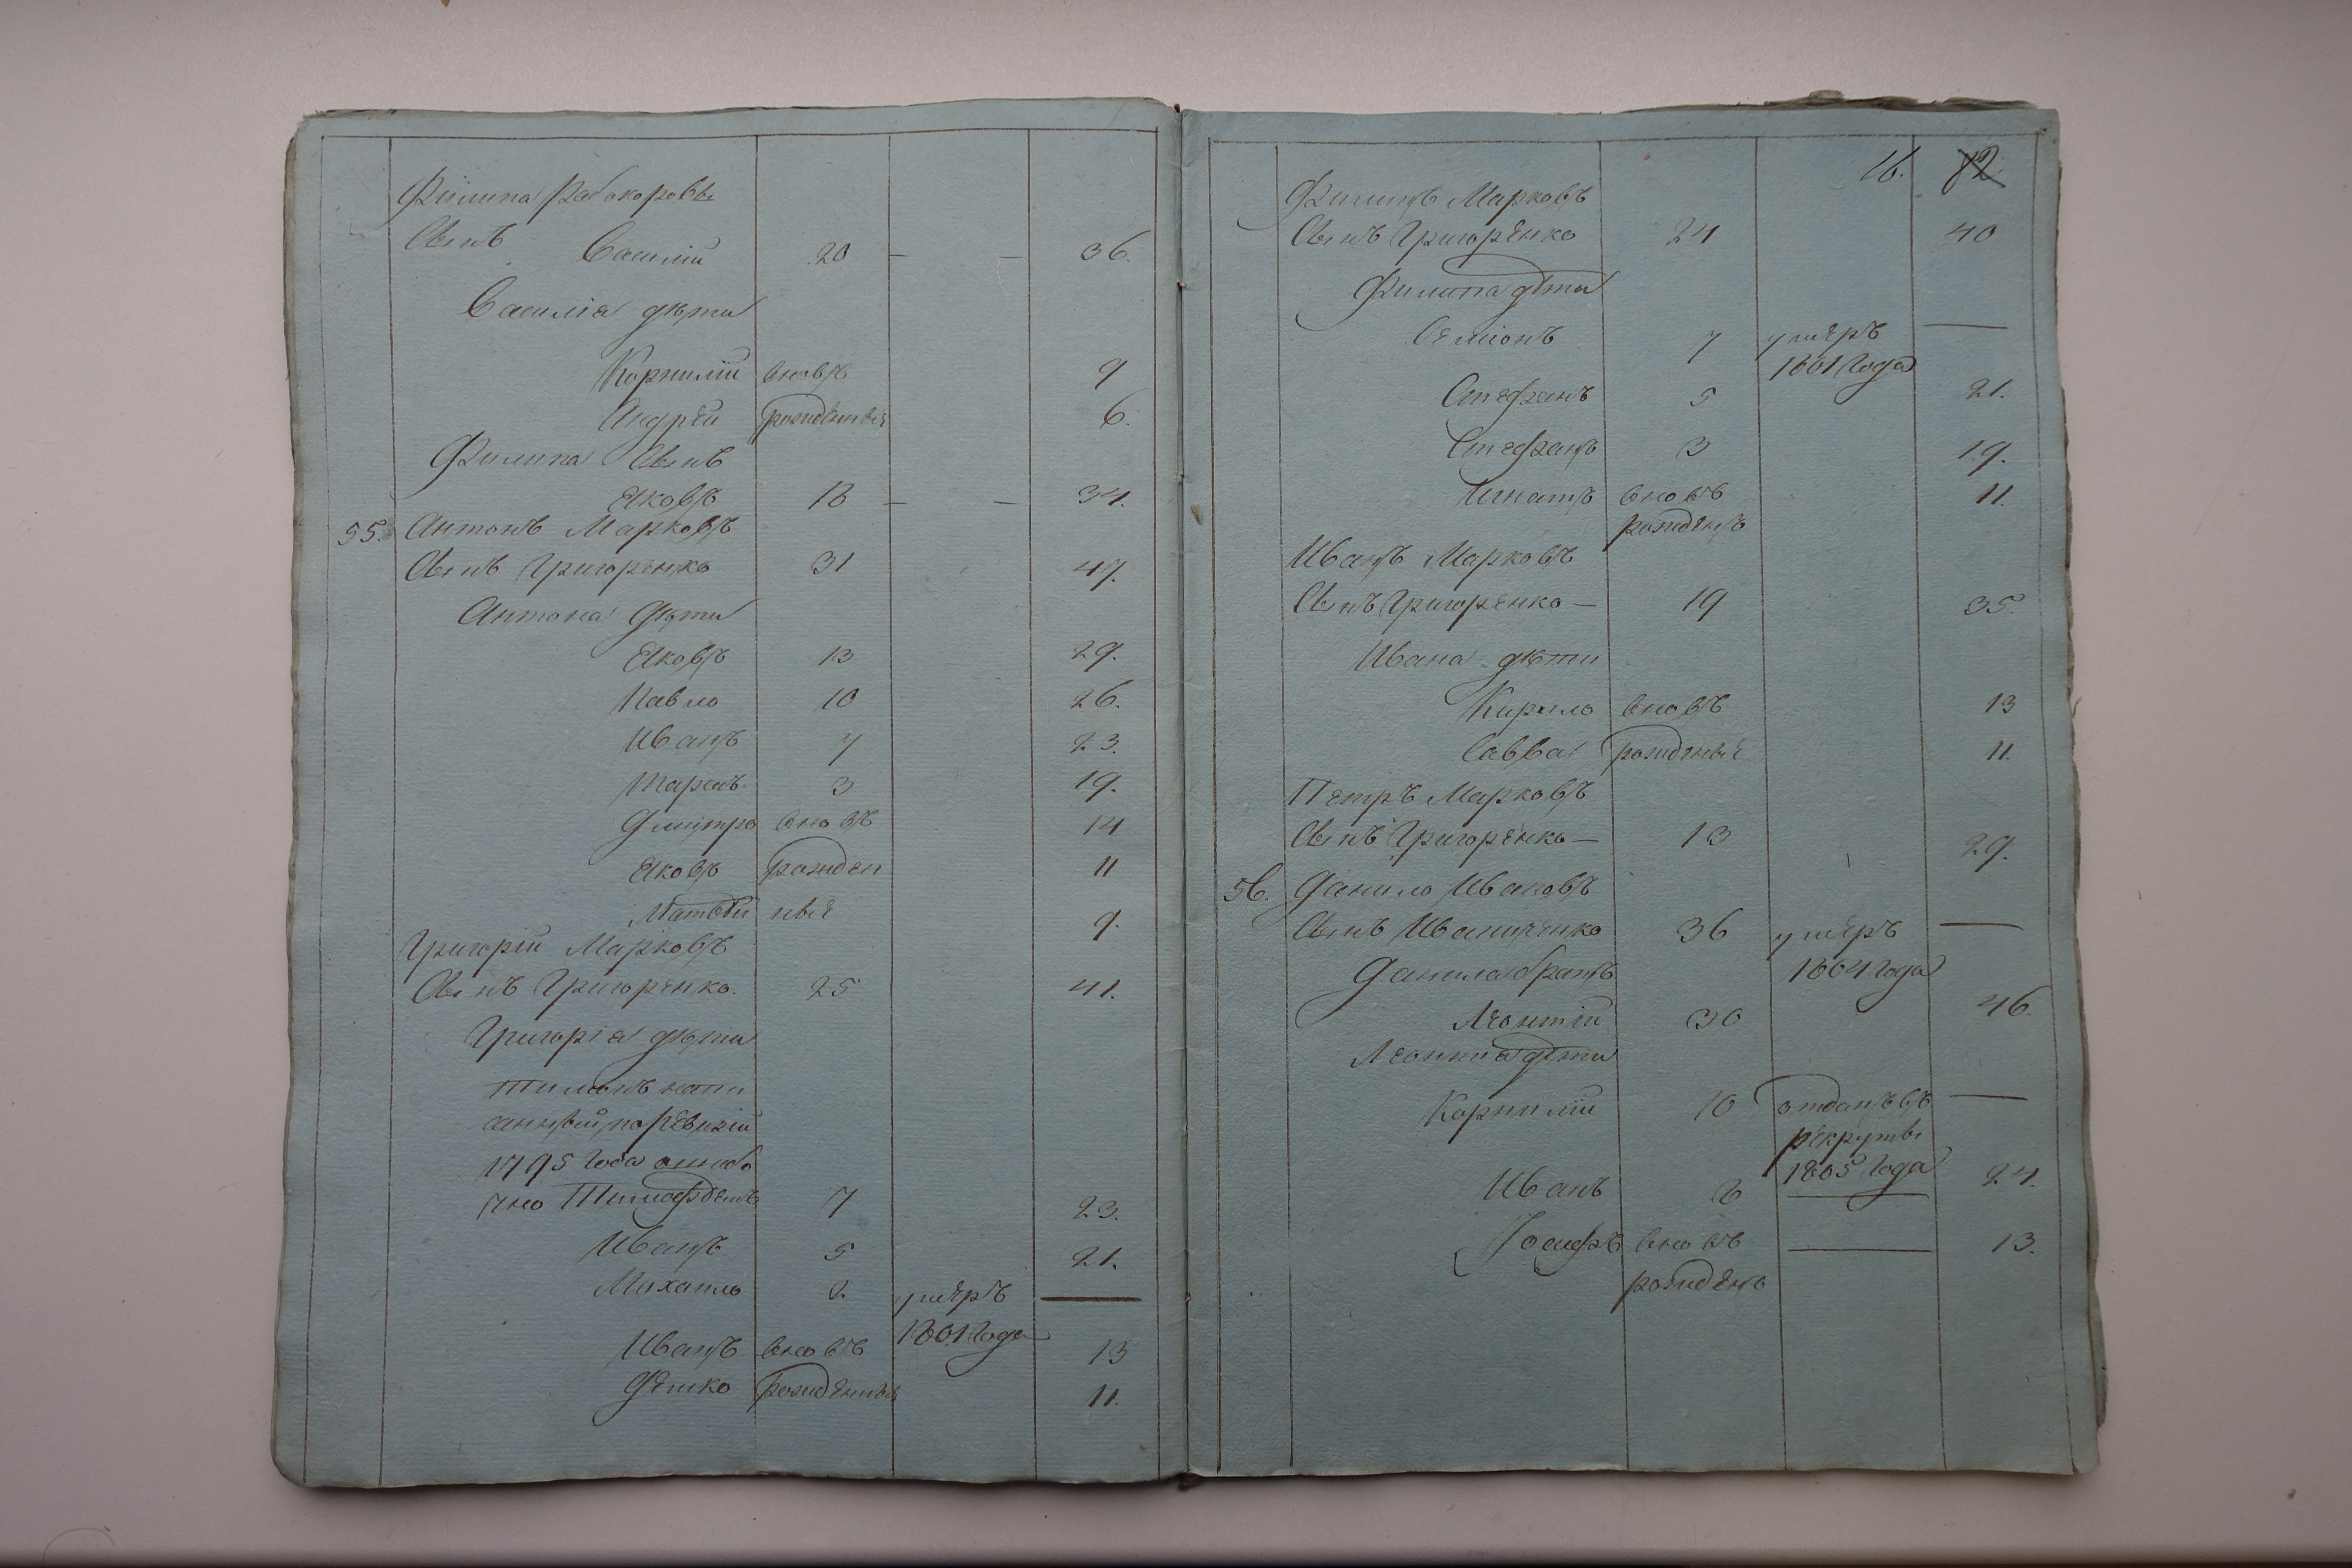 Филипа Рабокоровы
Сынъ Василій 20 — — 36.
Василія дѣти
Корнилій вновь 9
Андрей рожденные 6.
Филипа Сынъ
Яковъ 18 — — 34.
55. Антонъ Марковъ
Сынъ Григоренко 31 47.
Антона дѣти
Яковъ 13 29.
Павло 10 26.
Иванъ 7 23.
Тарасъ 3 19.
Дмитро вновь 14
Яковъ рожден 11
Матвѣй ные 9.
Григорій Марковъ
Сынъ Григоренко. 25 41.
Григорія дѣти
Тимошъ напи
санный по ревизіи
1795 года ошибо
чно Тимофѣемъ 7 23.
Иванъ 5 21.
Михаило 2 умеръ —
1801 Года
Иванъ вновь 13
Демко рожденные 11.
16. 82
Филипъ Марковъ
Сынъ Григоренко 24 40
Филипа дѣти
Семіонъ 7 умеръ —
1801 Года
Стефанъ 5 21.
Стефанъ 3 19.
Игнатъ вновь 11.
рожденъ
Иванъ Марковъ
Сынъ Григоренко — 19 35.
Ивана дѣти
Кирило вновь 13
Савва рожденые 11.
Петръ Марковъ
Сынъ Григоренко — 13 29.
56. Данило Ивановъ
Сынъ Иванченко 36 умеръ —
Данила братъ 1804 года
Леонтій 30 46.
Леонтія дѣти
Корнилій 10 отданъ въ —
рекруты
1805 Года
Иванъ 8 — 24.
Іосифъ вновь — 13.
рожденъ